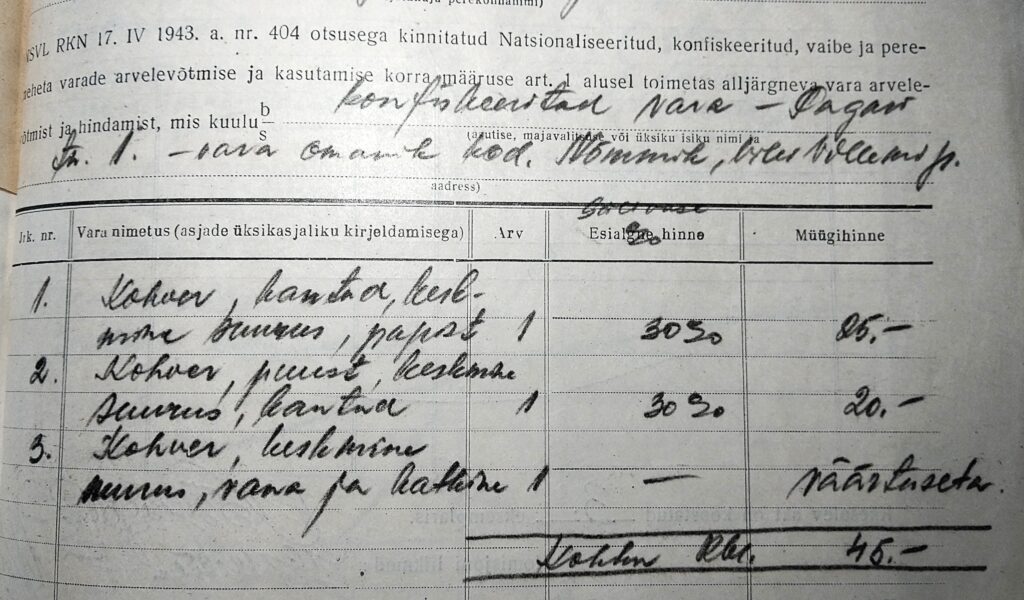 perekonnanimi)
NSVL RKN 17. IV 1943. a. nr. 404 otsusega kinnitatud Natsionaliseeritud, konfiskeeritud, vaibe ja pere-
meheta varade arvelevõtmise ja kasutamise korra määruse art. 1 alusel toimetas alljärgneva vara arvele-
konfiskeeritud vara —
võtmist ja hindamist, mis kuulu b/s
(asutise, majavalitsuse või üksiku isiku nimi ja
1. — vara omanik kod. Nõmmik,
aadress)
Jrk. nr. Vara nimetus (asjade üksikasjaliku kirjeldamisega) Arv Esialgne hinne Müügihinne
%
1. Kohver, kantud, kesk-
mine suurus, papist 1 30% 25.—
2. Kohver, puust, keskmine
suurus, kantud 1 30% 20.—
3. Kohver, keskmine
suurus, vana ja katkine 1 — väärtuseta.
Kokku Rbl. 45.—